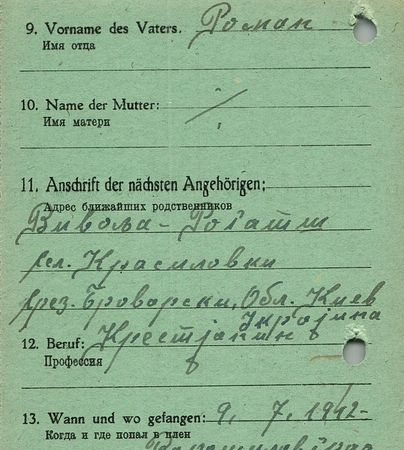 9. Vorname des Vaters. Роман
Имя отца
10. Name der Mutter:
Имя матери
11. Anschrift der nächsten Angehörigen;
Адрес ближайших родственников
сел. Красиловки
Броварски, Обл. Киев
Украјина
12. Beruf: Крестјанин
Профессия
13. Wann und wo gefangen: 9. 7. 1942-
Когда и где попал в плен